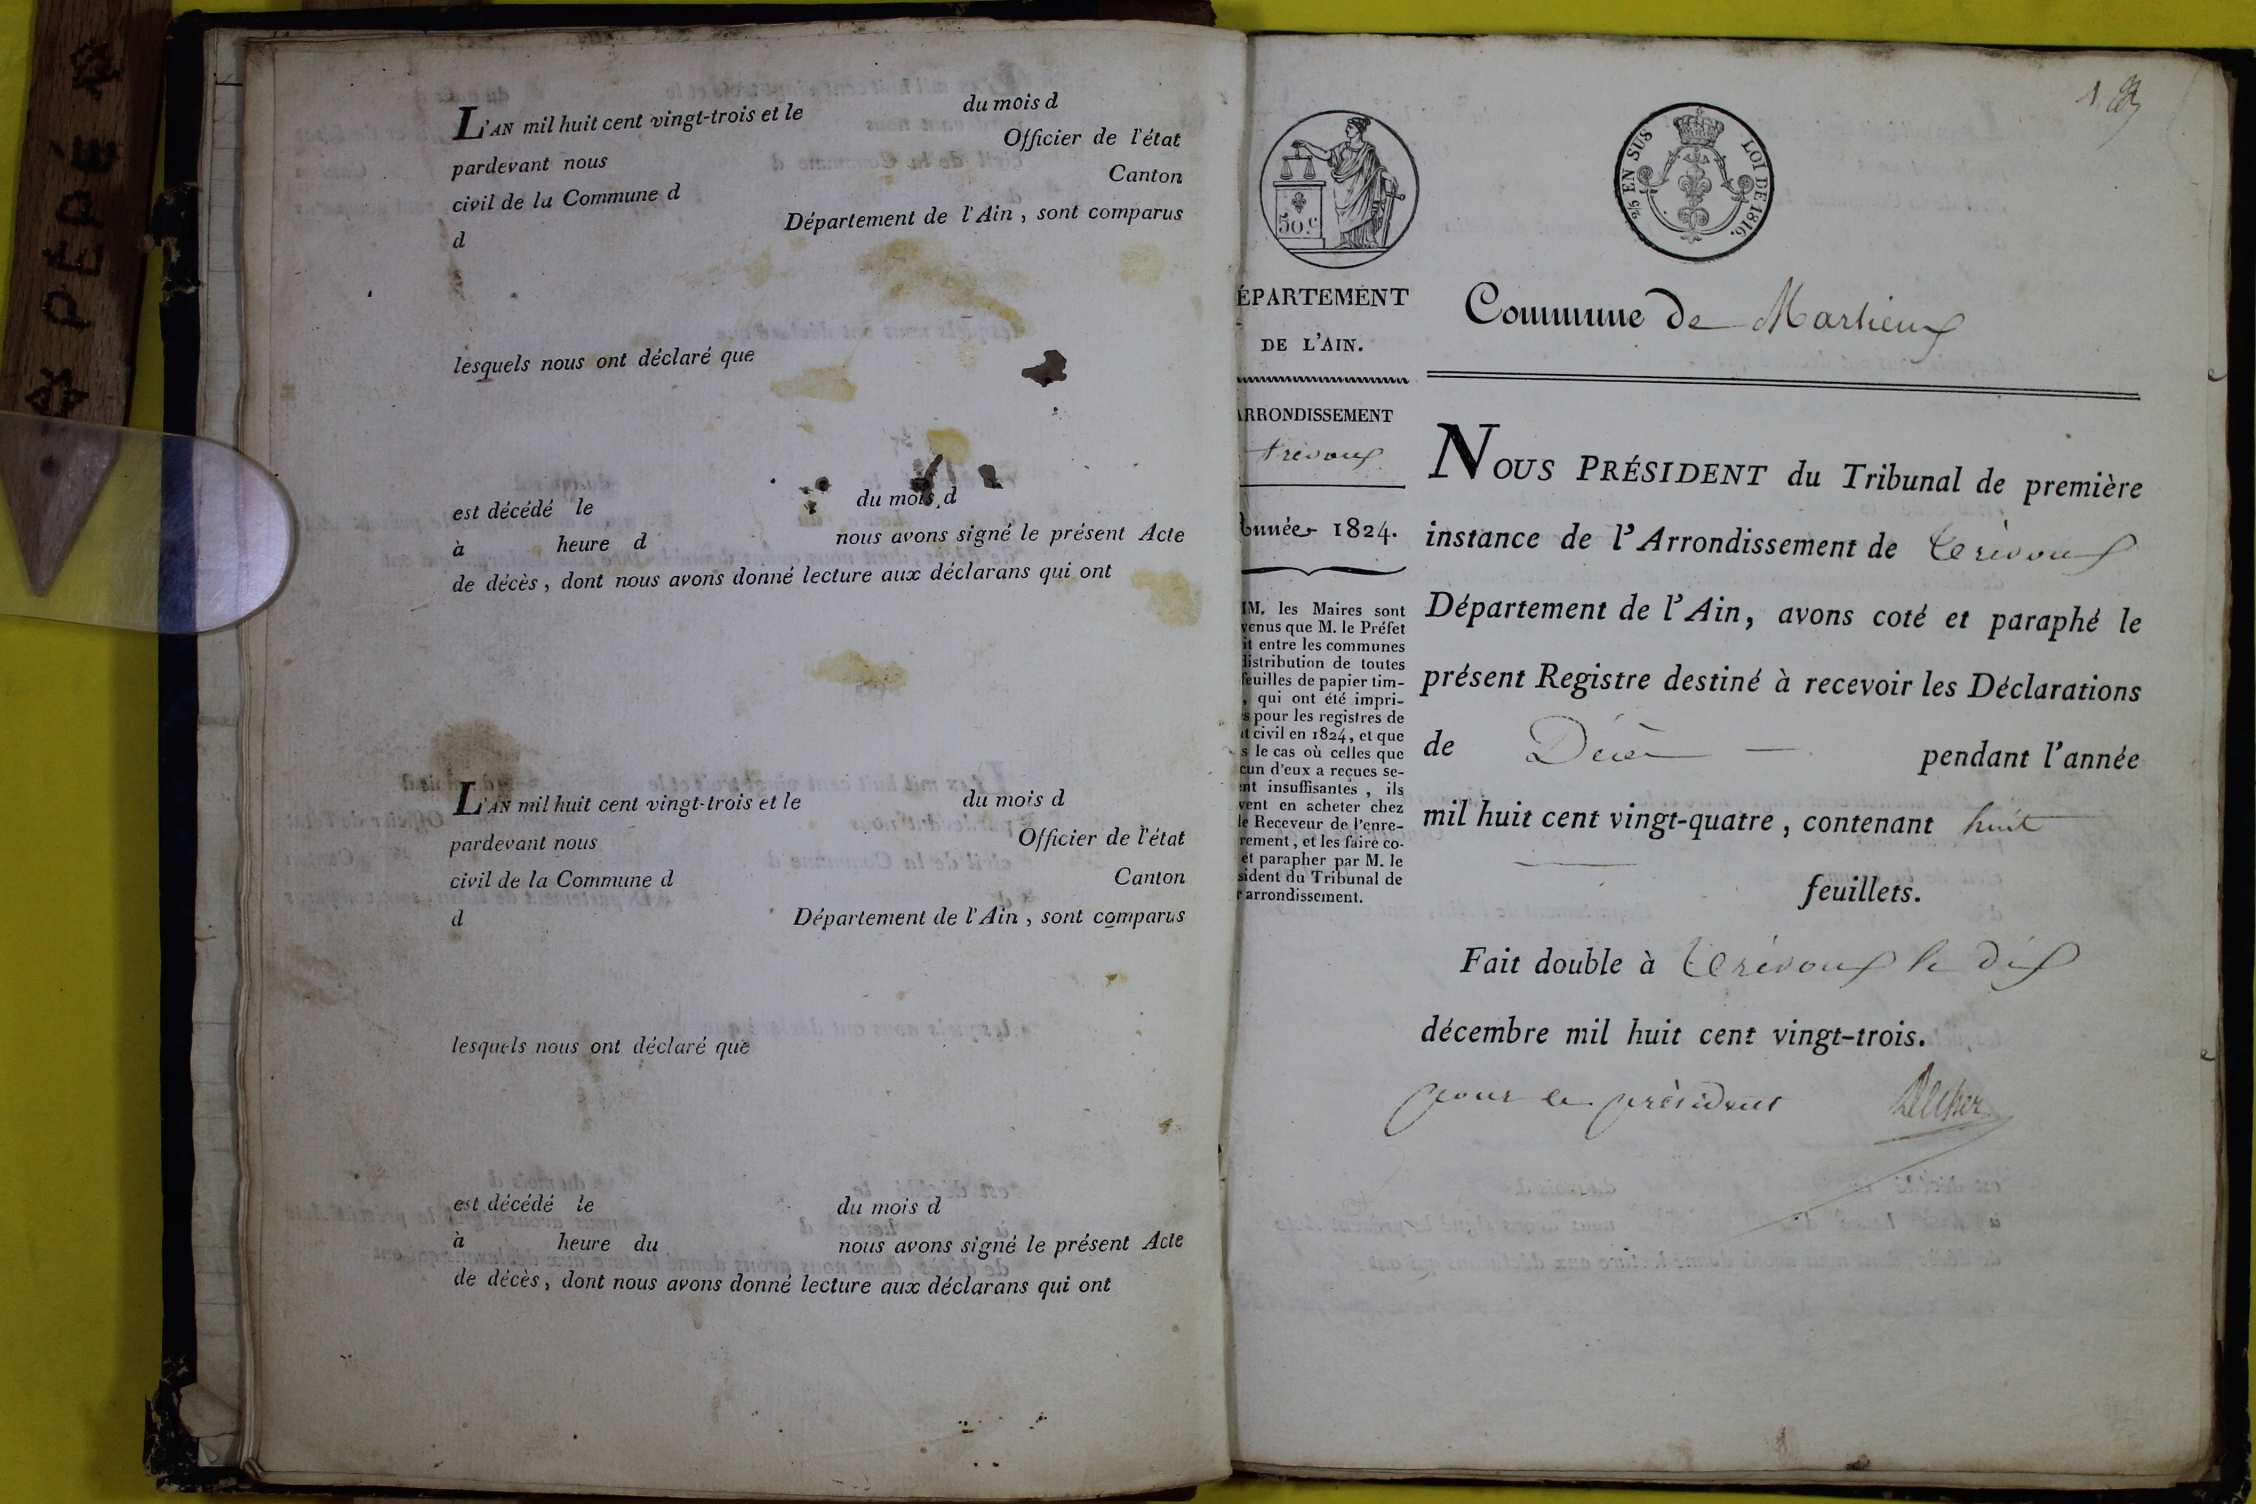 PÉPÉ
L'AN mil huit cent vingt-trois et le du mois d
pardevant nous Officier de l'état
civil de la Commune d Canton
d Département de l'Ain, sont comparus
lesquels nous ont déclaré que
est décédé le du mois d
à heure d nous avons signé le présent Acte
de décès, dont nous avons donné lecture aux déclarans qui ont
L'AN mil huit cent vingt-trois et le du mois d
pardevant nous Officier de l'état
civil de la Commune d Canton
d Département de l'Ain, sont comparus
lesquels nous ont déclaré que
est décédé le du mois d
à heure du nous avons signé le présent Acte
de décès, dont nous avons donné lecture aux déclarans qui ont
1
50.c
2/5 EN SUS LOI DE 1816.
ÉPARTEMENT
DE L'AIN.
ARRONDISSEMENT
trevoux
Année 1824.
MM. les Maires sont
venus que M. le Préfet
it entre les communes
distribution de toutes
feuilles de papier tim-
, qui ont été impri-
s pour les registres de
t civil en 1824, et que
s le cas où celles que
cun d'eux a reçues se-
nt insuffisantes, ils
vent en acheter chez
le Receveur de l'enre-
rement, et les faire co-
et parapher par M. le
sident du Tribunal de
r arrondissement.
Commune de Marlieux
NOUS PRÉSIDENT du Tribunal de première
instance de l'Arrondissement de trévoux
Département de l'Ain, avons coté et paraphé le
présent Registre destiné à recevoir les Déclarations
de Décès pendant l'année
mil huit cent vingt-quatre, contenant huit
feuillets.
Fait double à trévoux le dix
décembre mil huit cent vingt-trois.
pour le président